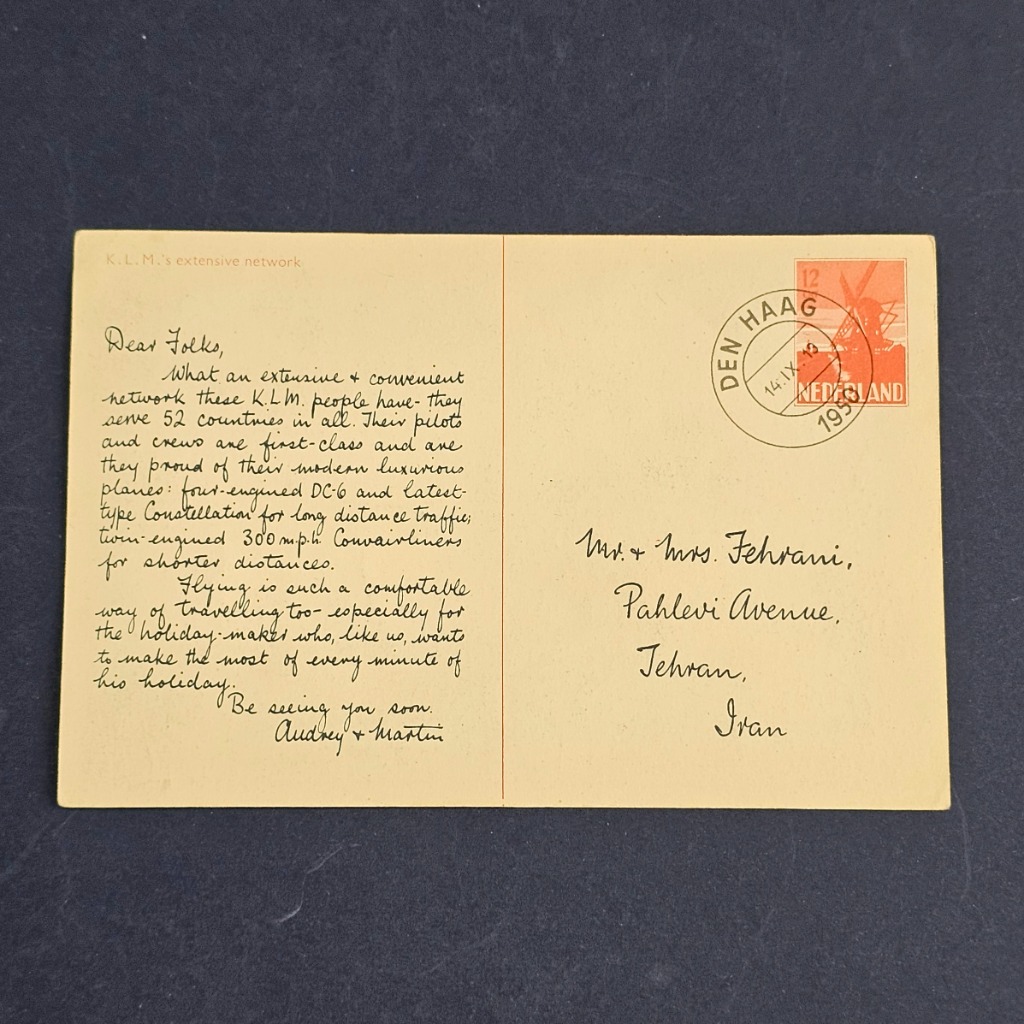 K.L.M.'s extensive network
Dear Folks,
What an extensive + convenient
network these K.L.M. people have - they
serve 52 countries in all. Their pilots
and crews are first-class and are
they proud of their modern luxurious
planes: four-engined DC-6 and latest-
type Constellation for long distance traffic;
twin-engined 300 m.p.h. Convairliners
for shorter distances.
Flying is such a comfortable
way of travelling too - especially for
the holiday-maker who, like us, wants
to make the most of every minute of
his holiday.
Be seeing you soon.
Audrey + Martin
12
NEDERLAND
DEN HAAG
14.IX.-13
1950
Mr. + Mrs. Tehrani,
Pahlevi Avenue,
Tehran,
Iran